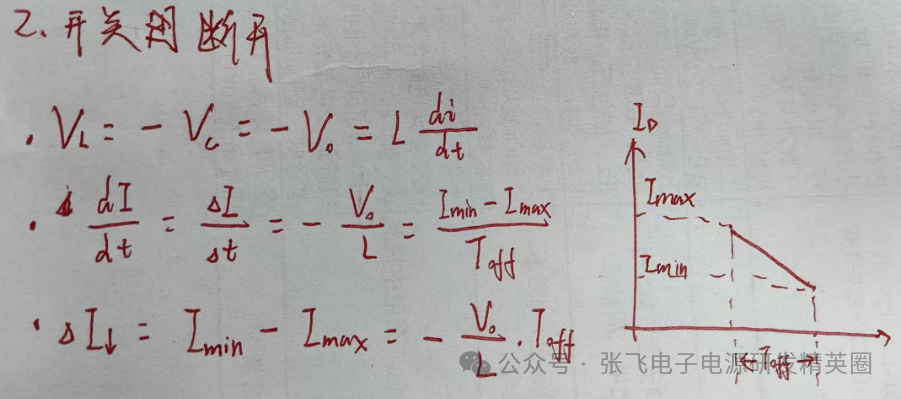 2. 开关闭断开
· V_L = - V_c = - V_o = L di/dt
· dI/dt = ΔI/Δt = - V_o/L = (I_min - I_max)/T_off
· ΔI↓ = I_min - I_max = - V_o/L · T_off
I_D
I_max
I_min
T_off
公众号 · 张飞电子电源研发精英圈